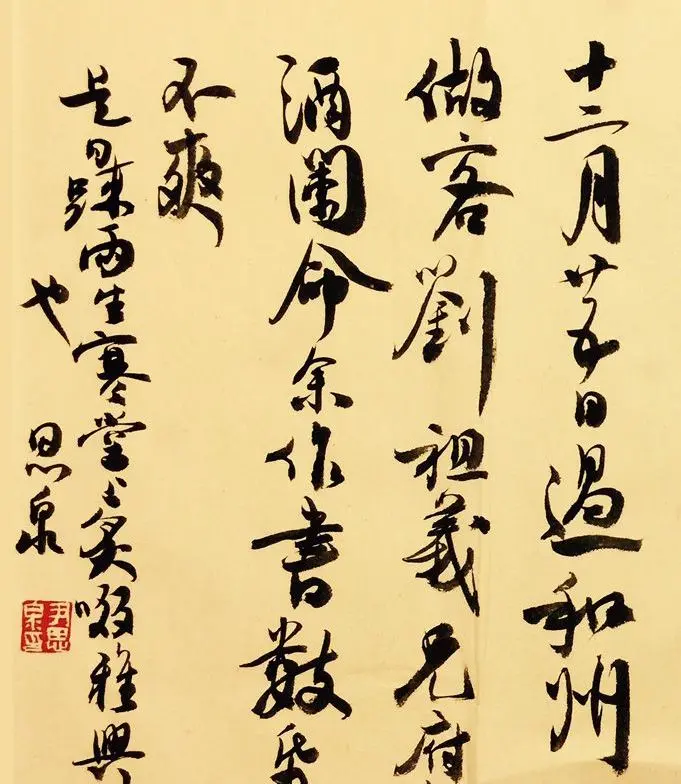 十二月廿五日過和州
做客劉祖義兄府
酒闌命余作書數帋
不爽
是日踈雨生寒堂上炙啜雅興
也
思泉
尹思泉印